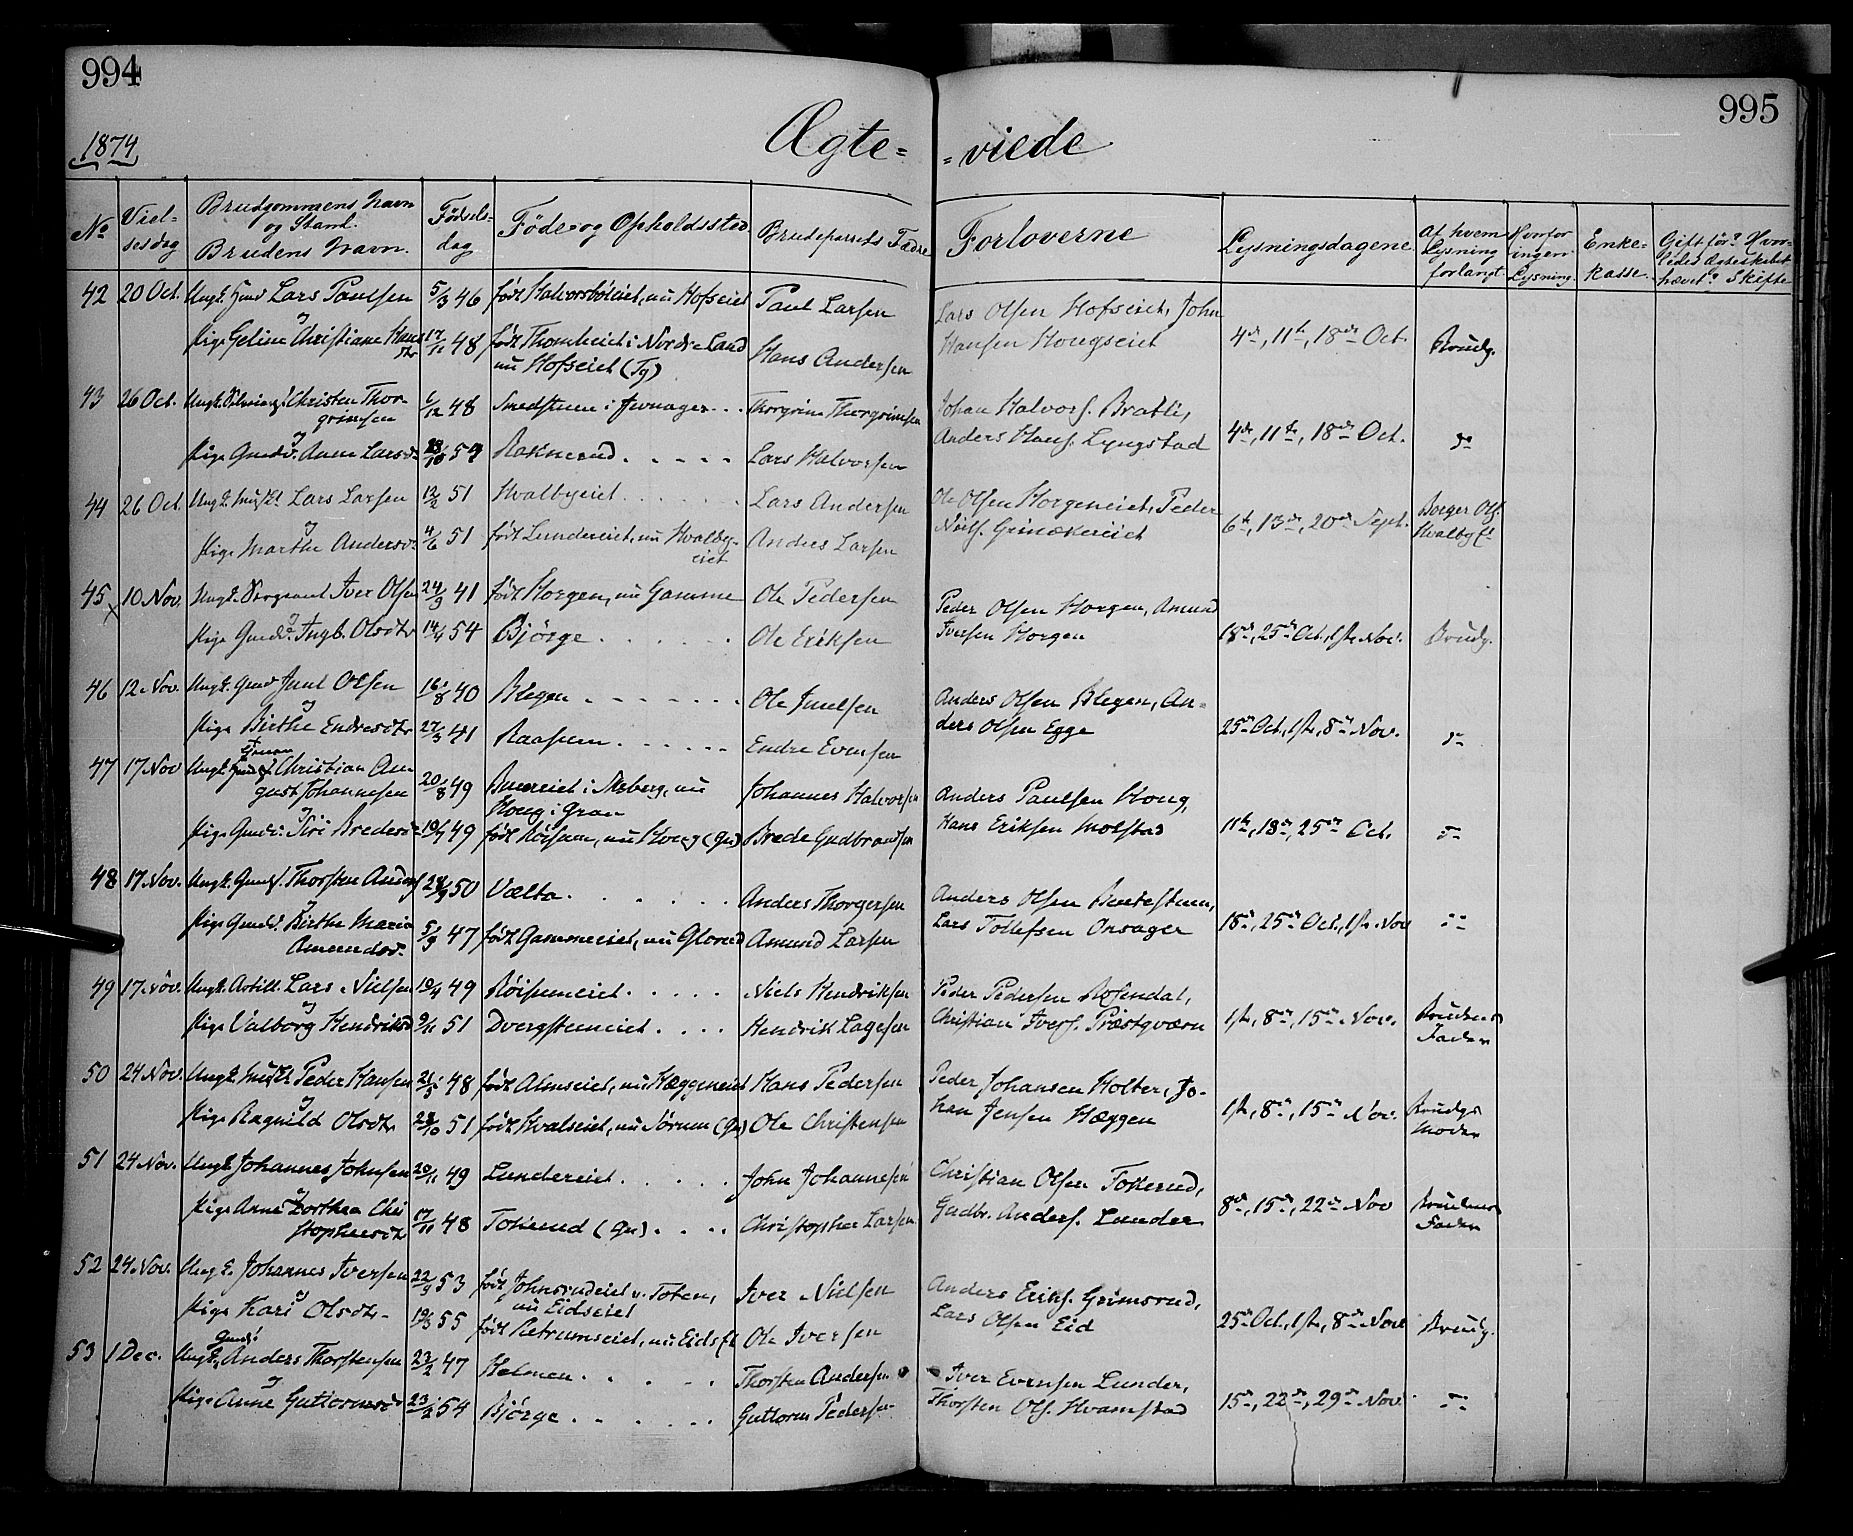 994
995
1874
Ægte= =viede
No
Viel-
sesdag
Brudgommens Navn
og Stand.
Brudens Navn.
Fødsels-
dag
Føde- og Opholdssted
Brudeparrets Fædre
Forloverne
Lysningsdagene
Af hvem
Lysning
forlangt
Hvorfor
ingen
Lysning.
Enke-
kasse.
Gift før? Hvor-
ledes Ægteskabet
hævet? Skifte
42 20 Oct. Ungk. Lars Paulsen 5/3 46 født Halvorsböleiet, nu Hofseiet Paul Larsen
og
Pige Geline Christiane Hans- 17/11 48 født Thomleiet i Nordre Land Hans Andersen
dtr nu Hofseiet (Tg)
Lars Olsen Hofseiet, John
Hansen Hongseiet 4de, 11te, 18de Oct. Brudg.
43 26 Oct. Ungk. Christen Thor- 6/12 48 Smedstuen i Jevnager Thorgrim Thorgrimsen
grimsen
og
Pige Gaardm. Anne Larsd. 54 Raknerud Lars Halvorsen
Johan Halvors. Bratli,
Anders Hans. Lyngstad 4de, 11te, 18de Oct. do
44 26 Oct. Ungk. Lars Larsen 12/2 51 Hvalbyeiet Lars Andersen
og
Pige Marthe Andersd. 4/6 51 født Lundereiet, nu Hvalby- Anders Larsen
eiet
Ole Olsen Horgeneiet, Peder
Niels. Grinakereiet 6te, 13de, 20de Sept. Borger Ols.
Hvalby
45 10 Nov. Ungk. Sergeant Iver Olsen 24/9 41 født Horgen, nu Gamme Ole Pedersen
og
Pige Ingb. Olsdtr 14/4 54 Bjørge Ole Eriksen
Peder Olsen Horgen, Amund
Iversen Horgen 18de, 25de Oct., 1ste Nov. Brudg.
46 12 Nov. Ungk. Juul Olsen 16/8 40 Blegen Ole Juulsen
og
Pige Birthe Endresdtr 27/3 41 Raassum Endre Evensen
Anders Olsen Blegen, An-
ders Olsen Egge 25de Oct., 1ste, 8de Nov. do
47 17 Nov Ungk. Christian Au- 20/8 49 i Aasberg, nu Johannes Halvorsen
gust Johannesen Hong i Gran
og
Pige Siri Bredesd. 19/4 49 født Röisum, nu Hong (Gn) Brede Gudbrandsen
Anders Paulsen Hong,
Hans Eriksen Molstad 11te, 18de, 25de Oct. do
48 17 Nov. Ungk. Thorsten Anders. 50 Vælta Anders Thorgersen
og
Pige Birthe Marie 5/9 47 født Gammeeiet, nu Glorud Amund Larsen
Amundsd.
Anders Olsen
Lars Tollefsen Onsager 18de, 25de Oct., 1ste Nov do
49 17 Nov. Ungk. Artill. Lars Nielsen 19/4 49 Röisumeiet Niels Hendriksen
og
Pige Valborg Hendriksd 9/11 51 Dvergsteneiet Hendrik Lagesen
Peder Pedersen Rosendal,
Christian Ivers. Præstqværn 1ste, 8de, 15de Nov. Brudens
Fader
50 24 Nov. Ungk. Peder Hansen 21/3 48 født Almseiet, nu Hæggeneiet Hans Pedersen
og
Pige Ragnild Olsdtr 51 født Hvalseiet, nu Sörum (Gn) Ole Christensen
Peder Johansen Holter, Jo-
han Jensen Hæggen 1ste, 8de, 15de Nov. Brudgs
Moder
51 24 Nov. Ungk. Johannes Johnsen 20/11 49 Lundereiet John Johannesen
og
Pige Anne Dorthea Chri 17/11 48 Tokerud (Gn) Christopher Larsen
stophersdtr
Christian Olsen Tokerud,
Gudbr. Anders. Lunder 8de, 15de, 22de Nov Brudens
Fader
52 24 Nov. Ungk. Johannes Iversen 22/9 53 født Johnsrudeiet v. Toten, Iver Nielsen
nu Eidseiet
og
Pige Kari Olsdtr 19/3 55 født Retrumseiet, nu Eids Ole Iversen
Anders Eriks. Grimsrud,
Lars Olsen Eid 25de Oct., 1ste, 8de Nov Brudg.
53 1 Dec. Ungk. Anders Thorstensen 23/2 47 Helmen Thorsten Andersen
og
Pige Anne Guttormsd. 23/2 54 Bjørge Guttorm Pedersen
Iver Evensen Lunder,
Thorsten Ols. Hvamstad 15de, 22de, 29de Nov. do